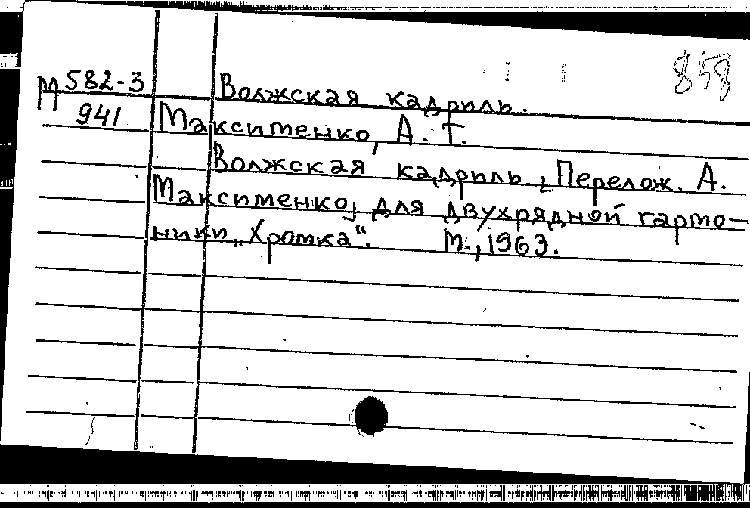 858
М 582-3 Волжская кадриль.
941 Максименко, А. Т.
Волжская кадриль, Перелож. А.
Максименко, для двухрядной гармо-
ники „Хромка“. М., 1963.